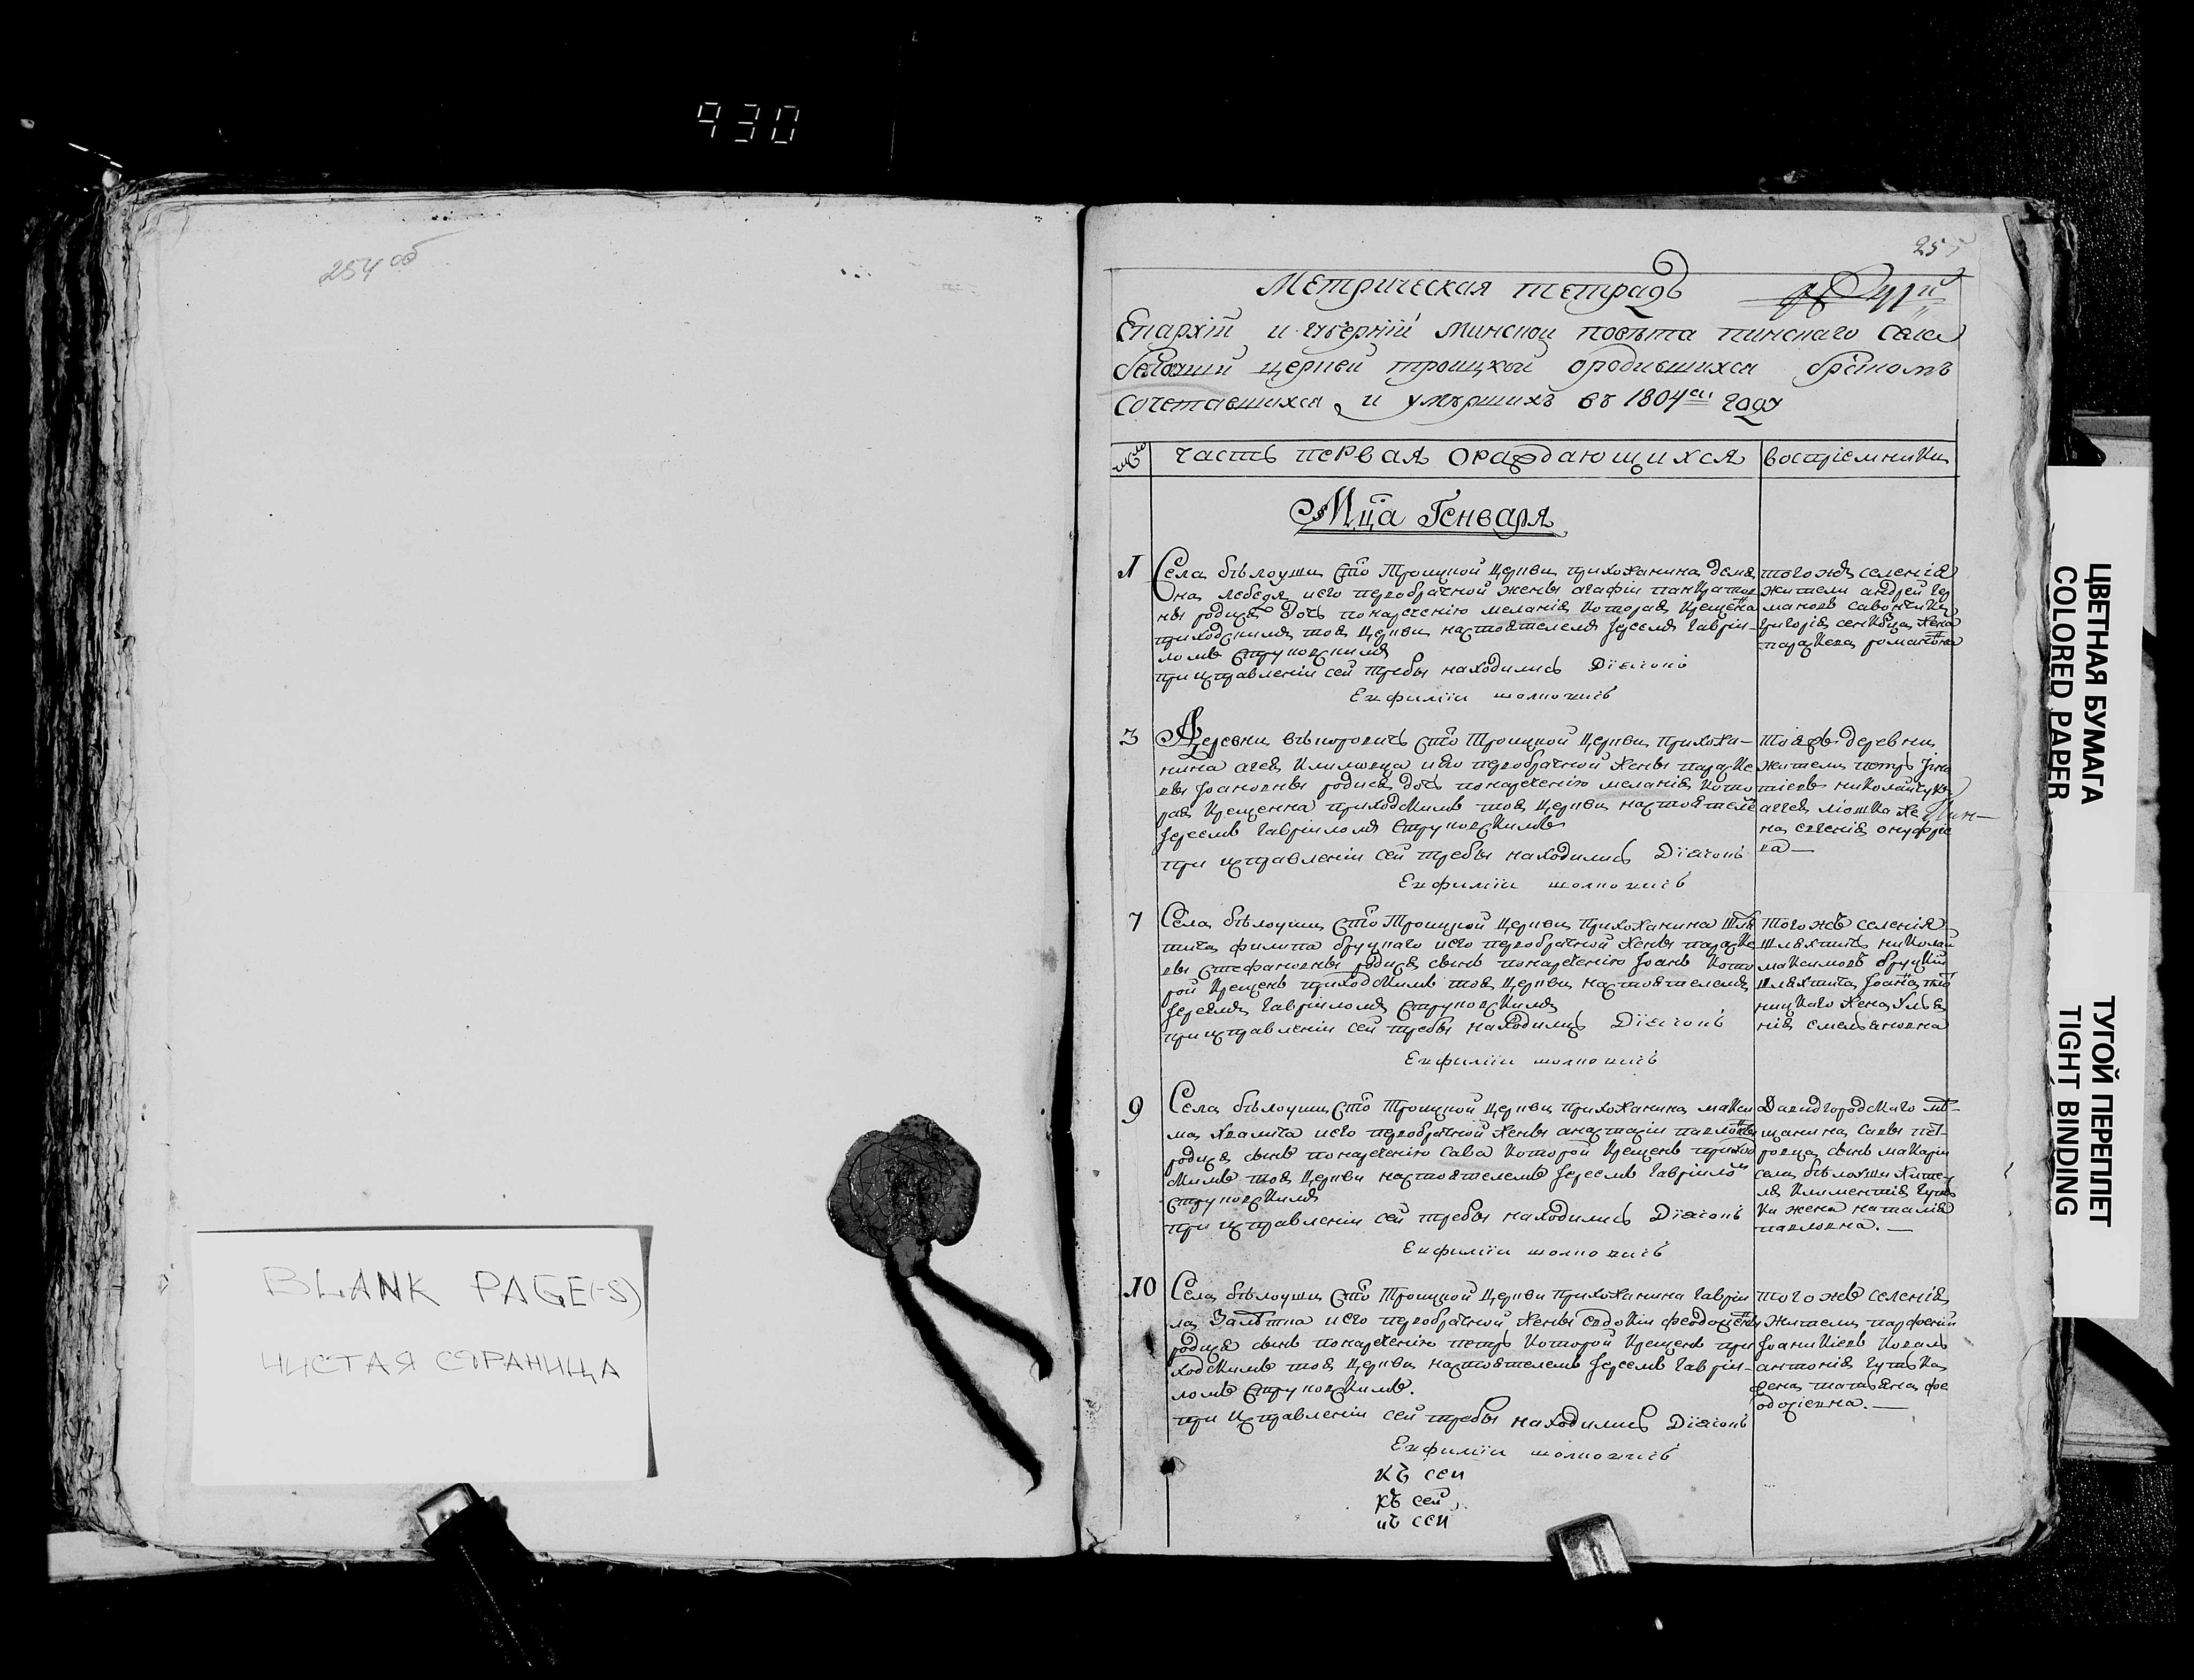 930
254 об
BLANK PAGE(-S)
ЧИСТАЯ СТРАНИЦА
255
Метрическая тетрадь
Епархіи и губерніи минской повѣта пинскаго села
церкви троицкой ородившихся браком
сочетавшихся и умѣршихъ въ 1804м году
часть первая ораждающихся
воспріемники
Мца Генваря
1
Села бѣлоуши сто Троицкой Церкви прихожанина деме
на лебедя иего первобрачной жены агафіи панкратов
ны родися дочь понаречению меланія которая крещена
приходскимъ тоя Церкви настоятелемъ Іереемъ Гавріи-
ломъ Струковскимъ
при исправленіи сей требы находились Діяконъ
Евфиміи
того жъ селенія
жители андрей гер
мановъ савончикъ
григорія жена
параскева романовна
3
Деревни сто Троицкой Церкви прихожа-
нина иего первобрачной жены параске
вы Іоановны родися дочь понаречению меланія кото
рая крещенна приходскимъ тоя Церкви настоятеле
Іереемъ Гавріиломъ Струковскимъ
при исправленіи сей требы находились Діяконъ
Евфиміи
тояжъ деревни
жители петръ
николай
на евгенія онуфріе
ва—
7
Села бѣлоуши сто Троицкой Церкви прихожанина Шля
тича филипа бруцкаго иего первобрачной жены параске
вы стефановны родися сынъ понаречению Іоанъ кото
рой крещенъ приходскимъ тоя Церкви настоятелемъ
Іереемъ Гавріиломъ Струковскимъ
при исправленіи сей требы находились Діяконъ
Евфиміи
того жъ селенія
шляхтичъ николай
максимовъ бруцкій
шляхтича Іоана
ницкаго жена улья
нія емельяновна
9
Села бѣлоуши сто Троицкой Церкви прихожанина макси
ма хвалича иего первобрачной жены анастасіи павловны
родися сынъ понаречению Сава которой крещенъ приход
скимъ тоя Церкви настоятелемъ Іереемъ Гавріиломъ
Струковскимъ
при исправленіи сей требы находились Діяконъ
Евфиміи
Давидгородскаго мѣ-
щанина савы пет-
ровца сынъ макаріи
села бѣлоуши жите-
ля климентія
ки жена наталія
павловна.—
10
Села бѣлоуши сто Троицкой Церкви прихожанина гавріи
ла иего первобрачной жены евдокіи феодосіевны
родися сынъ понаречению петръ которой крещенъ при
ходскимъ тоя Церкви настоятелемъ Іереемъ Гавріи-
ломъ Струковскимъ.
при исправленіи сей требы находились Діяконъ
Евфиміи
того жъ селенія
жители парфеній
Іоаникіевъ коваль
антонія
жена татьяна фе
одосіевна.—
къ сеи
къ сей
къ сеи
ЦВЕТНАЯ БУМАГА
COLORED PAPER
ТУГОЙ ПЕРЕПЛЕТ
TIGHT BINDING